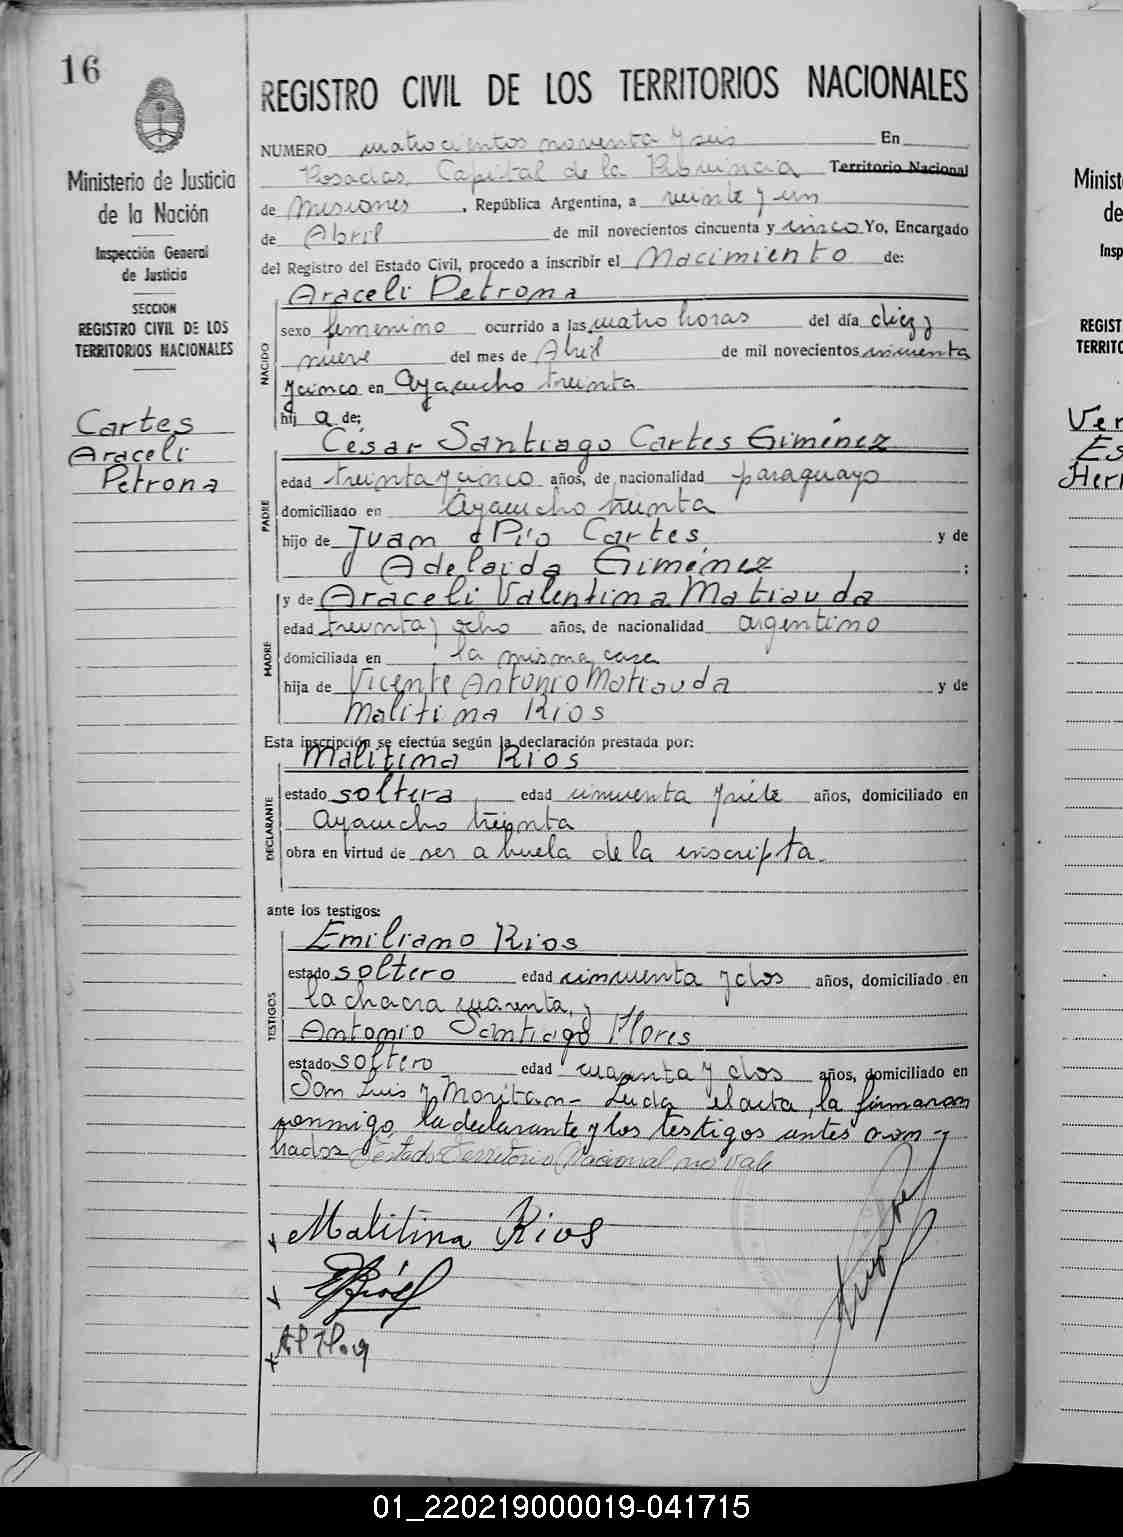 16
Ministerio de Justicia
de la Nación
Inspección General
de Justicia
SECCION
REGISTRO CIVIL DE LOS
TERRITORIOS NACIONALES
Cartes
Araceli
Petrona
REGISTRO CIVIL DE LOS TERRITORIOS NACIONALES
NUMERO cuatrocientos noventa y seis En
Posadas, Capital de la Provincia Territorio Nacional
de Misiones, República Argentina, a veinte y un
de Abril de mil novecientos cincuenta y cinco Yo, Encargado
del Registro del Estado Civil, procedo a inscribir el Nacimiento de:
Araceli Petrona
NACIDO
sexo femenino ocurrido a las cuatro horas del día diez y
nueve del mes de Abril de mil novecientos cincuenta
y cinco en Ayacucho treinta
hij a de:
César Santiago Cartes Giménez
PADRE
edad treinta y cinco años, de nacionalidad paraguayo
domiciliado en Ayacucho treinta
hijo de Juan Pío Cartes y de
Adelaida Giménez ;
y de Araceli Valentina Matiauda
MADRE
edad treinta y ocho años, de nacionalidad argentino
domiciliada en la misma casa
hija de Vicente Antonio Matiauda y de
Malitina Rios
Esta inscripción se efectúa según la declaración prestada por:
Malitina Rios
DECLARANTE
estado soltera edad cincuenta y siete años, domiciliado en
Ayacucho treinta
obra en virtud de ser abuela de la inscripta.
ante los testigos:
Emiliano Rios
TESTIGOS
estado soltero edad cincuenta y dos años, domiciliado en
la chacra cuarenta, y
Antonio Santiago Flores
estado soltero edad cuarenta y dos años, domiciliado en
San Luis y Moritan - Leida el acta, la firmaron
conmigo la declarante y los testigos antes nom-
brados Testado Territorio Nacional no vale
Malitina Rios
ERios
01_220219000019-041715
Minist
de
Insp
REGIST
TERRITO
Ver
Es
Herr